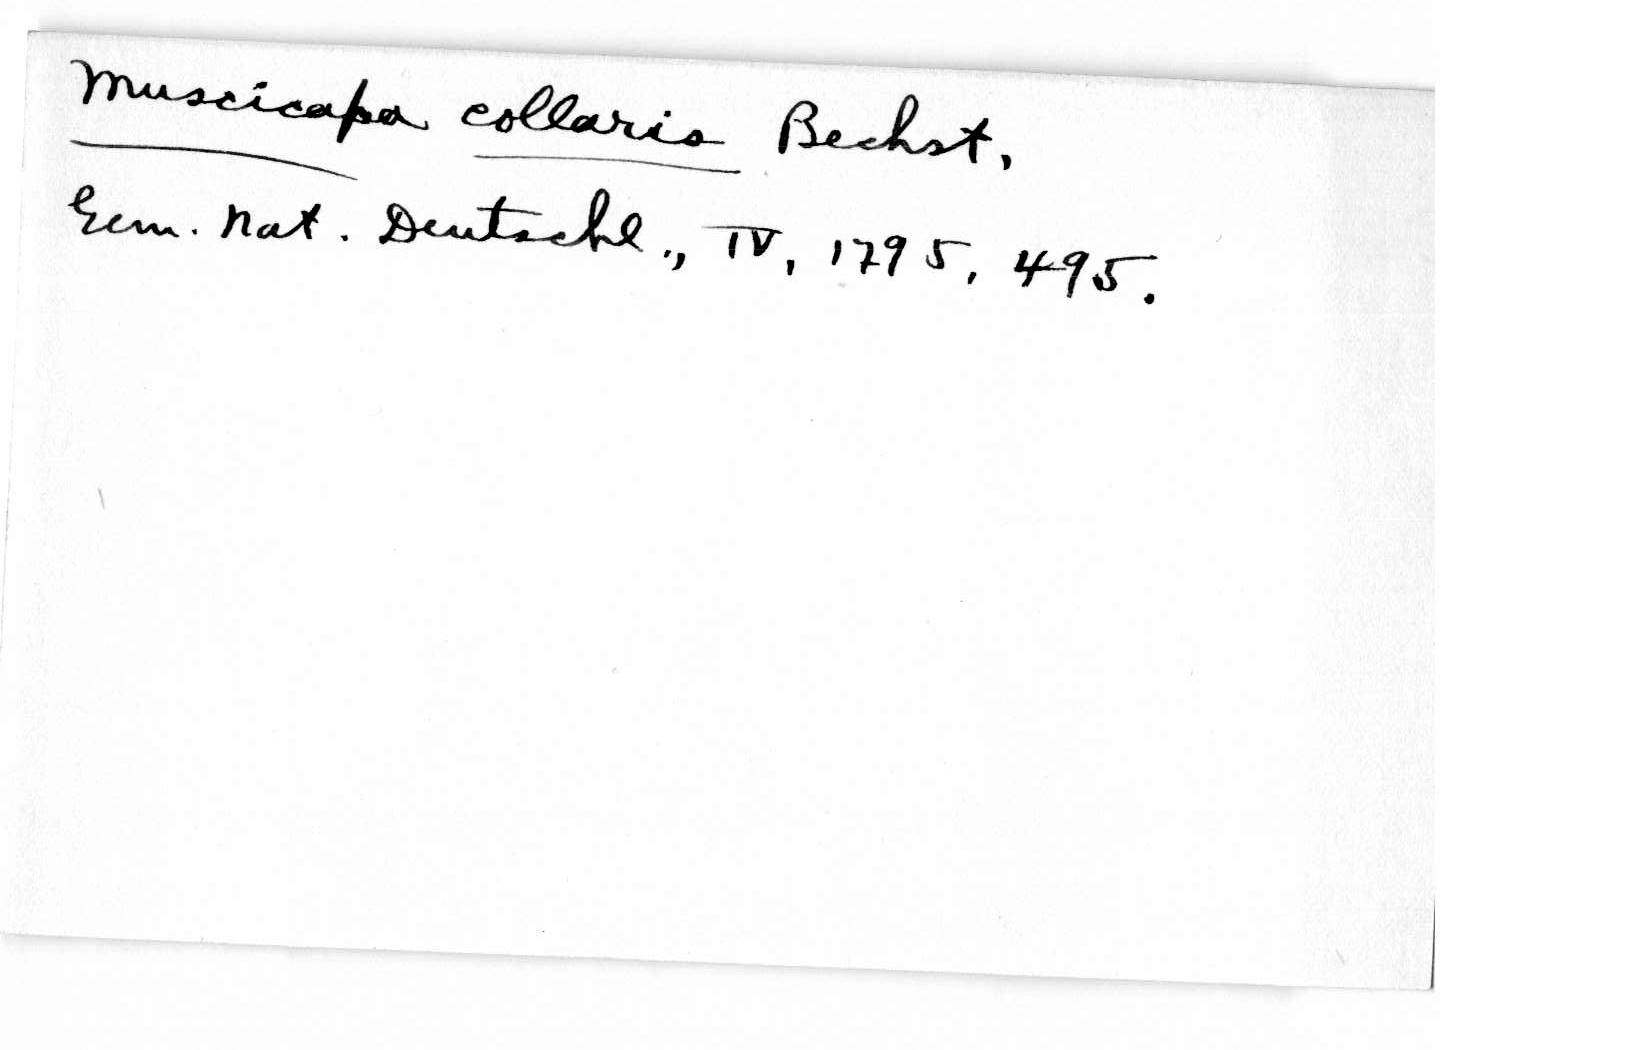 Muscicapa collaris Bechst,
Gem. Nat. Deutschl., IV, 1795, 495.